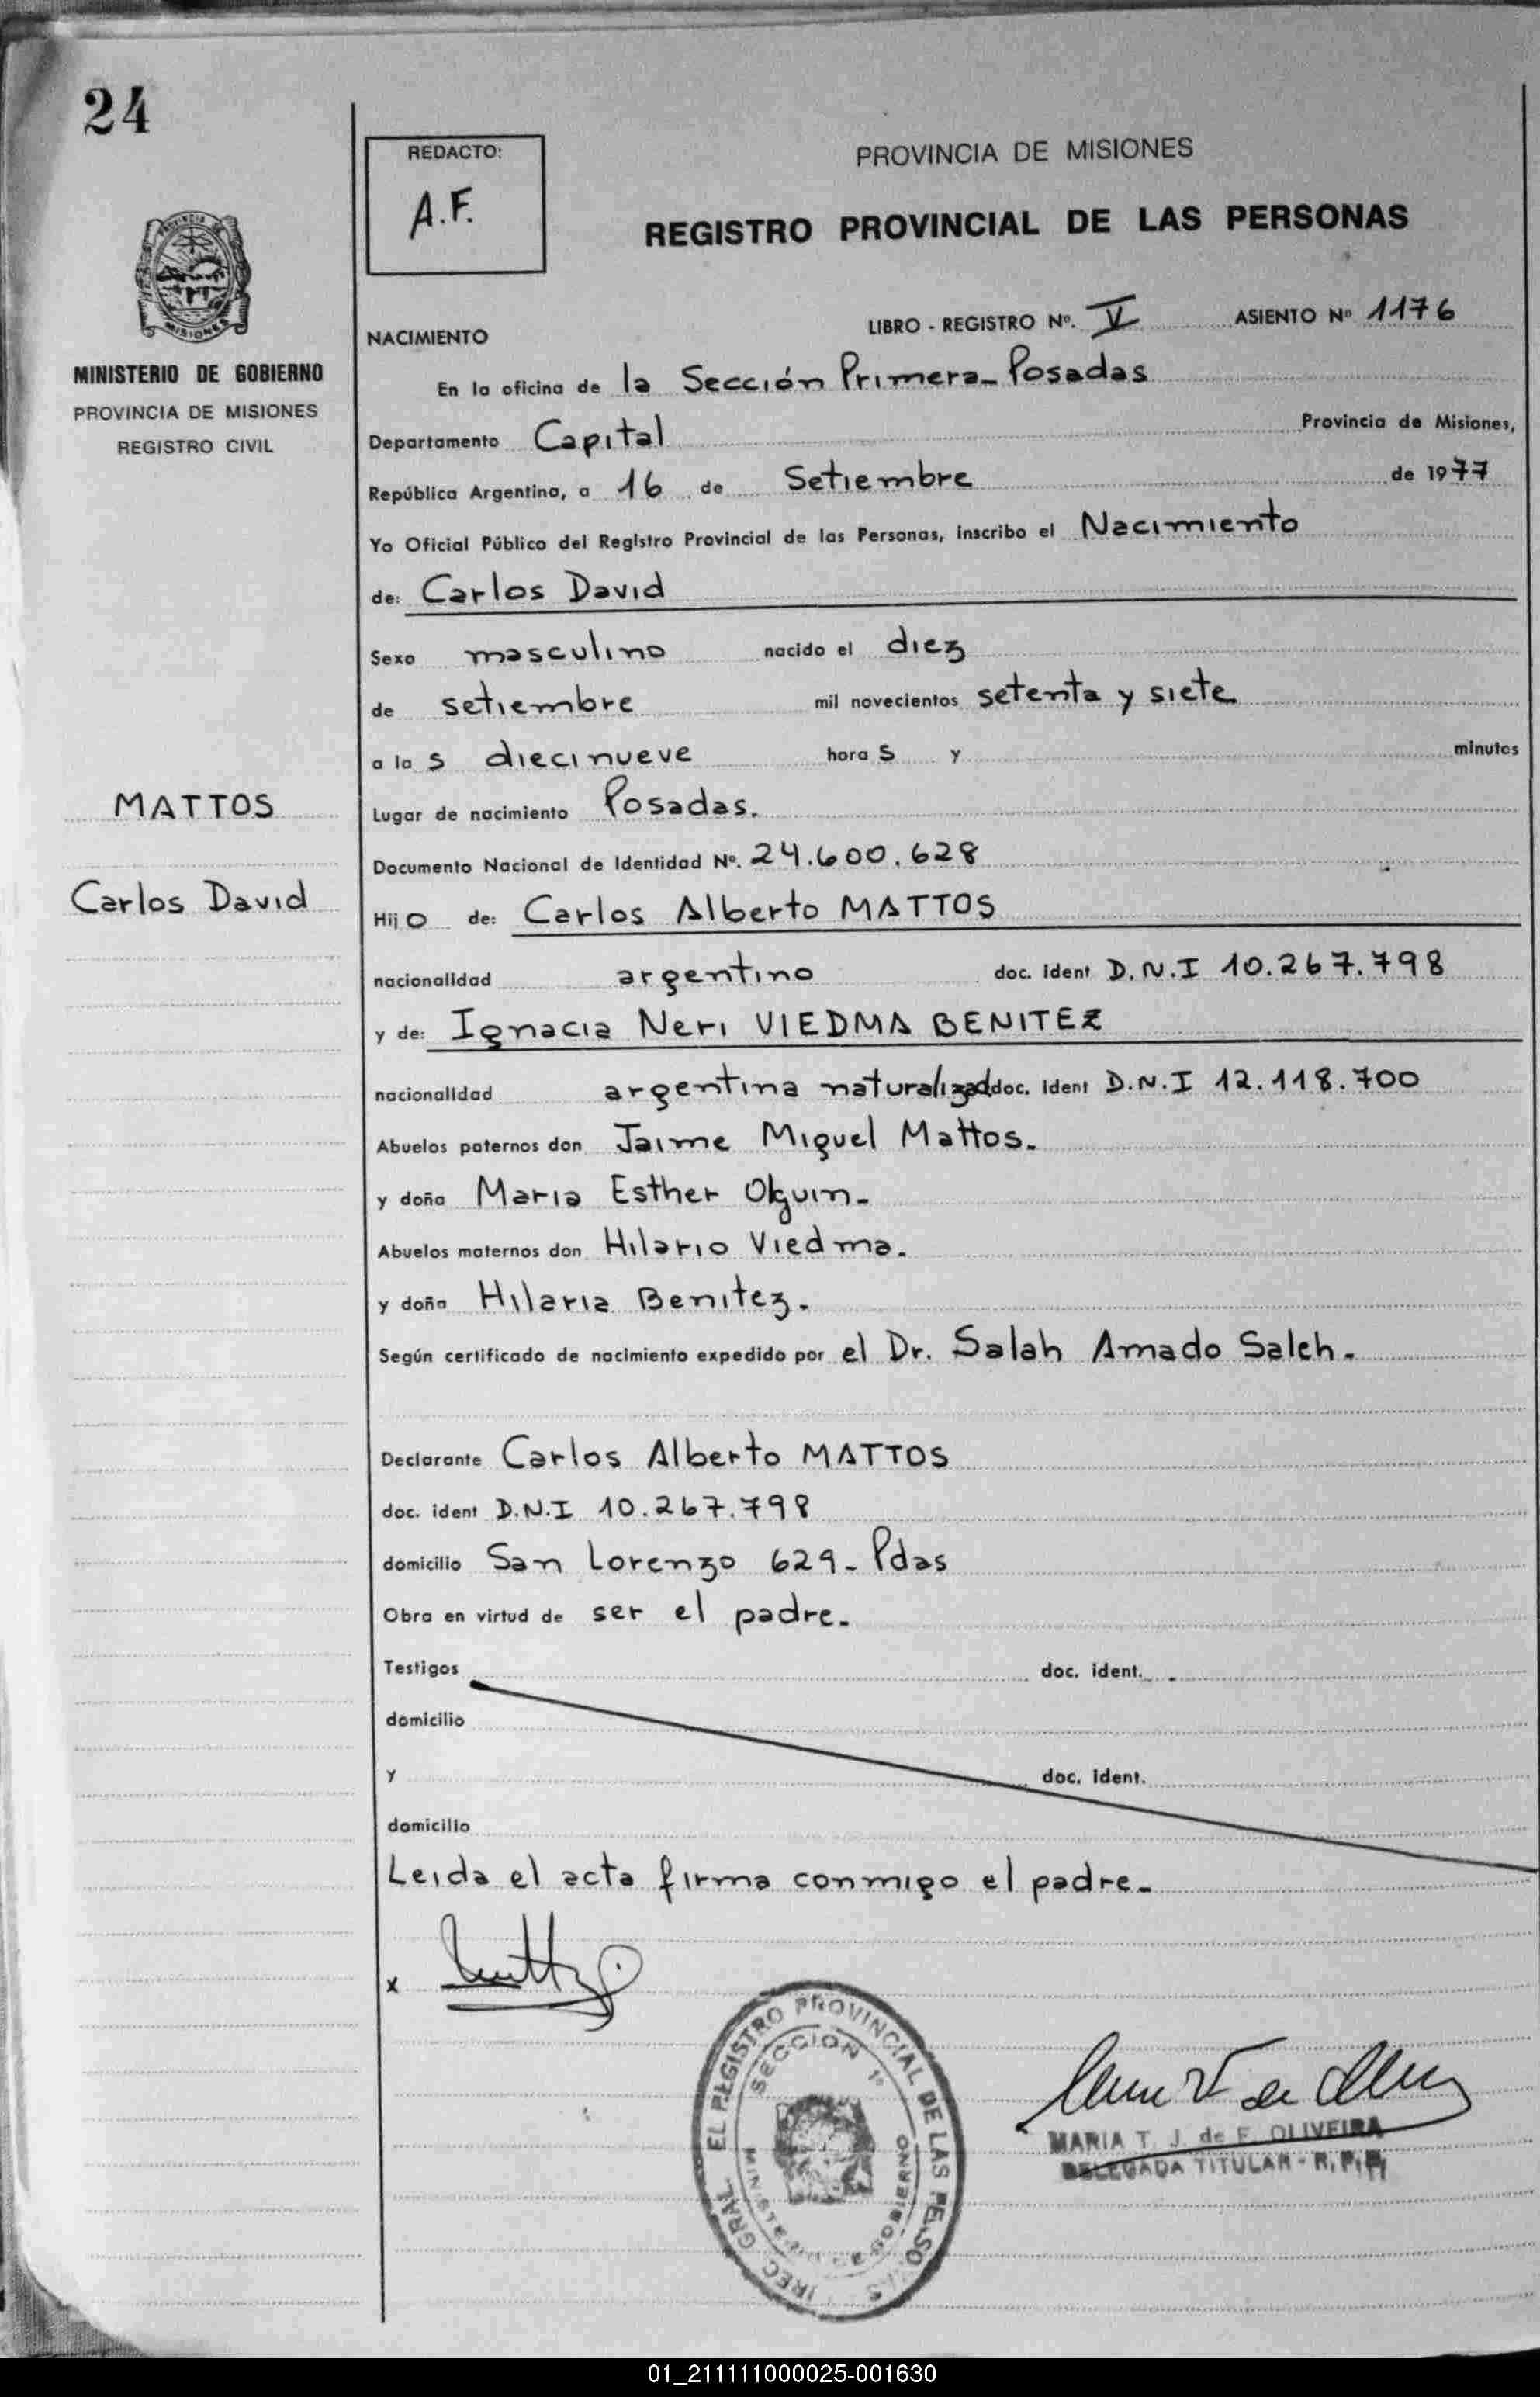 24
REDACTO:
A.F.
PROVINCIA DE MISIONES
REGISTRO PROVINCIAL DE LAS PERSONAS
MISIONES
MINISTERIO DE GOBIERNO
PROVINCIA DE MISIONES
REGISTRO CIVIL
NACIMIENTO
LIBRO - REGISTRO Nº. V ASIENTO Nº 1176
En la oficina de la Sección Primera_ Posadas
Departamento Capital Provincia de Misiones,
República Argentina, a 16 de Setiembre de 1977
Yo Oficial Público del Registro Provincial de las Personas, inscribo el Nacimiento
de: Carlos David
Sexo masculino nacido el diez
de setiembre mil novecientos setenta y siete
a la s diecinueve hora s y minutos
MATTOS
Lugar de nacimiento Posadas.
Documento Nacional de Identidad Nº. 24.600.628
Carlos David
Hij o de: Carlos Alberto MATTOS
nacionalidad argentino doc. ident D.N.I 10.267.798
y de: Ignacia Neri VIEDMA BENITEZ
nacionalidad argentina naturalizad doc. ident D.N.I 12.118.700
Abuelos paternos don Jaime Miguel Mattos.
y doña Maria Esther Olguin_
Abuelos maternos don Hilario Viedma.
y doña Hilaria Benitez.
Según certificado de nacimiento expedido por el Dr. Salah Amado Saleh.
Declarante Carlos Alberto MATTOS
doc. ident D.N.I 10.267.798
domicilio San Lorenzo 629_ Pdas
Obra en virtud de ser el padre.
Testigos doc. ident.
domicilio
y doc. ident.
domicilio
Leida el acta firma conmigo el padre_
x
EL REGISTRO PROVINCIAL DE LAS PERSONAS
SECCION 1º
MINISTERIO DE GOBIERNO
GRAL.
MARIA T. J. de F. OLIVEIRA
DELEGADA TITULAR - R.P.P.
01_211111000025-001630